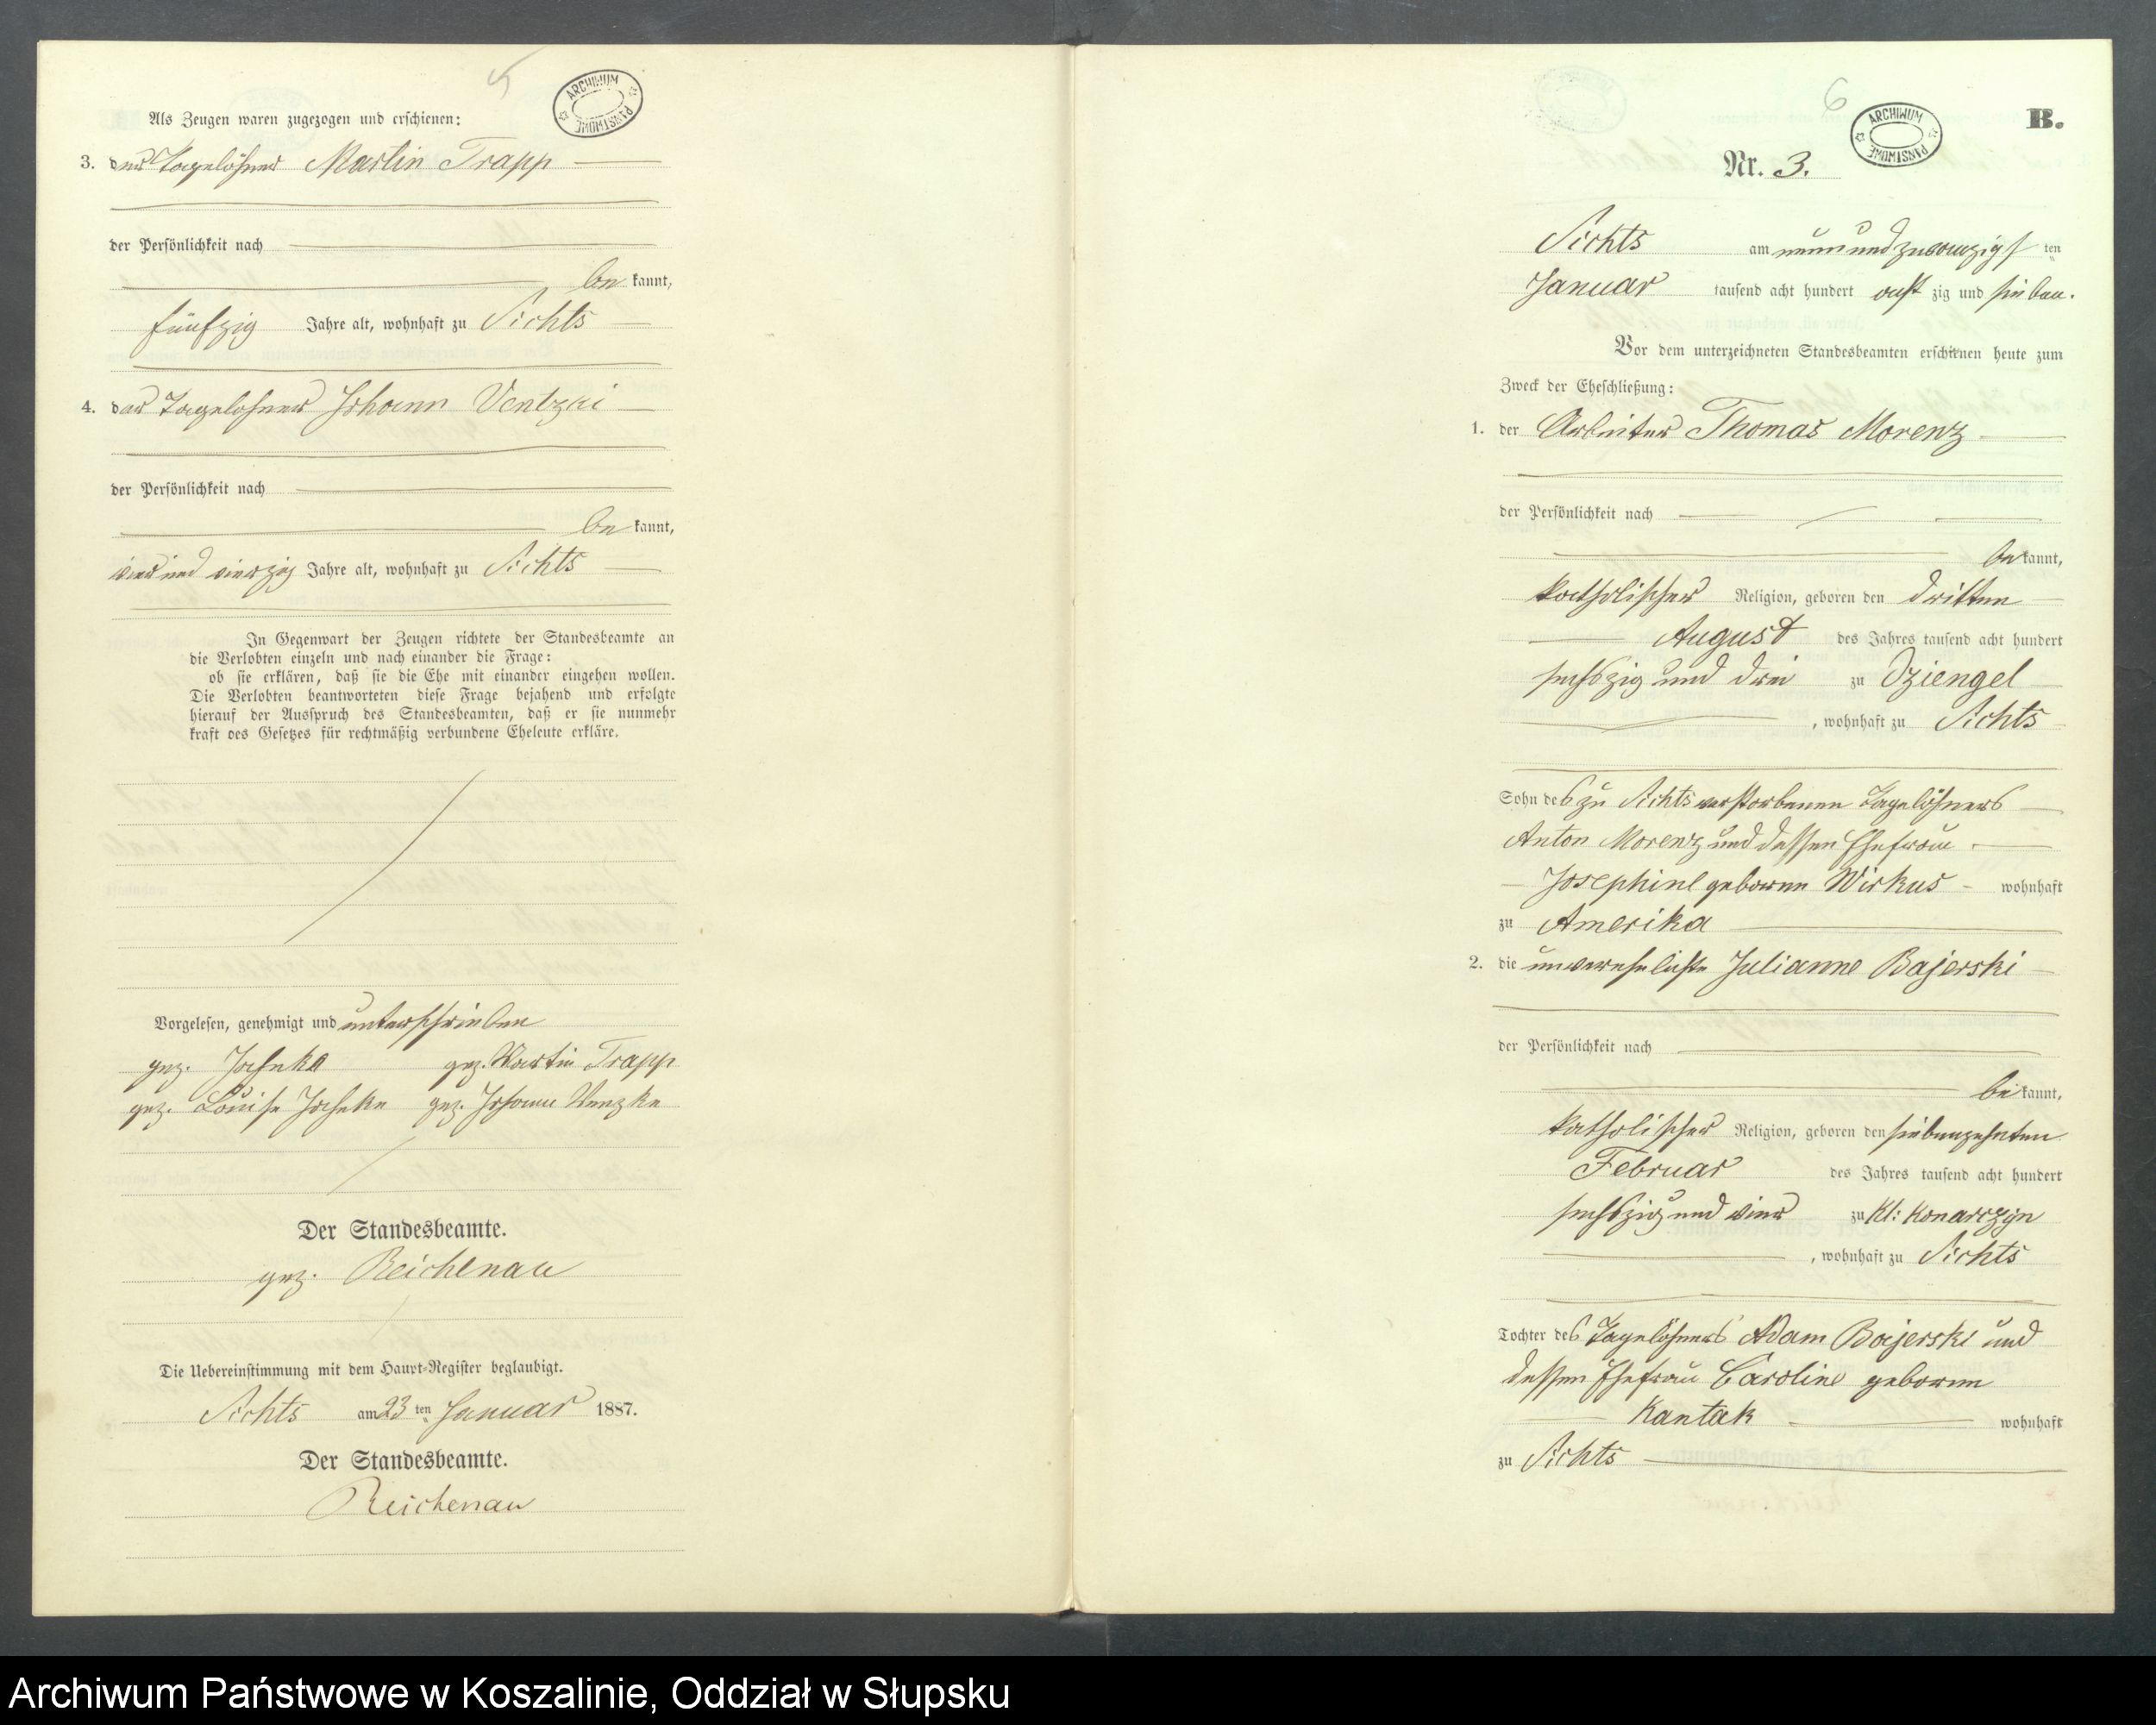 5
ARCHIWUM PAŃSTWOWE
Als Zeugen waren zugezogen und erschienen:
3. der Tagelöhner Martin Trapp
der Persönlichkeit nach
be kannt,
fünfzig Jahre alt, wohnhaft zu Sichts
4. der Tagelöhner Johann Ventzki
der Persönlichkeit nach
be kannt,
vier und vierzig Jahre alt, wohnhaft zu Sichts
In Gegenwart der Zeugen richtete der Standesbeamte an
die Verlobten einzeln und nach einander die Frage:
ob sie erklären, daß sie die Ehe mit einander eingehen wollen.
Die Verlobten beantworteten diese Frage bejahend und erfolgte
hierauf der Ausspruch des Standesbeamten, daß er sie nunmehr
kraft des Gesetzes für rechtmäßig verbundene Eheleute erkläre.
Vorgelesen, genehmigt und unterschrieben
gez. Jahnke gez. Martin Trapp
gez. Louise Jahnke gez. Johann Venzke
Der Standesbeamte.
gez. Reichenau
Die Uebereinstimmung mit dem Haupt-Register beglaubigt.
Sichts am 23 ten Januar 1887.
Der Standesbeamte.
Reichenau
6
ARCHIWUM PAŃSTWOWE
B.
Nr. 3.
Sichts am neunundzwanzigst ten
Januar tausend acht hundert acht zig und sieben.
Vor dem unterzeichneten Standesbeamten erschienen heute zum
Zweck der Eheschließung:
1. der Arbeiter Thomas Morenz
der Persönlichkeit nach
be kannt,
katholischer Religion, geboren den dritten
August des Jahres tausend acht hundert
sechszig und drei zu Dziengel
, wohnhaft zu Sichts
Sohn des zu Sichts verstorbenen Tagelöhners
Anton Morenz und dessen Ehefrau
Josephine geborene Wirkus wohnhaft
zu Amerika
2. die unverehelichte Julianne Bajerski
der Persönlichkeit nach
be kannt,
katholischer Religion, geboren den siebenzehnten
Februar des Jahres tausend acht hundert
sechszig und vier zu Kl: Konarczyn
, wohnhaft zu Sichts
Tochter des Tagelöhners Adam Bajerski und
dessen Ehefrau Caroline geborene
Kantak wohnhaft
zu Sichts
Archiwum Państwowe w Koszalinie, Oddział w Słupsku